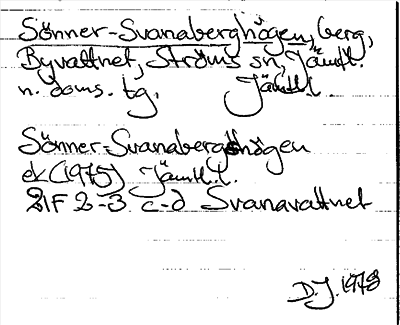 Sönner-Svanaberghögen, berg,
Byvattnet, Ströms sn, Jämtl.
n. doms. tg. Jämtl. l.
Sönner-Svanaberghögen
ek (1975) Jämtl. l.
21F 2-3 c-d Svanavattnet
D.J. 1978